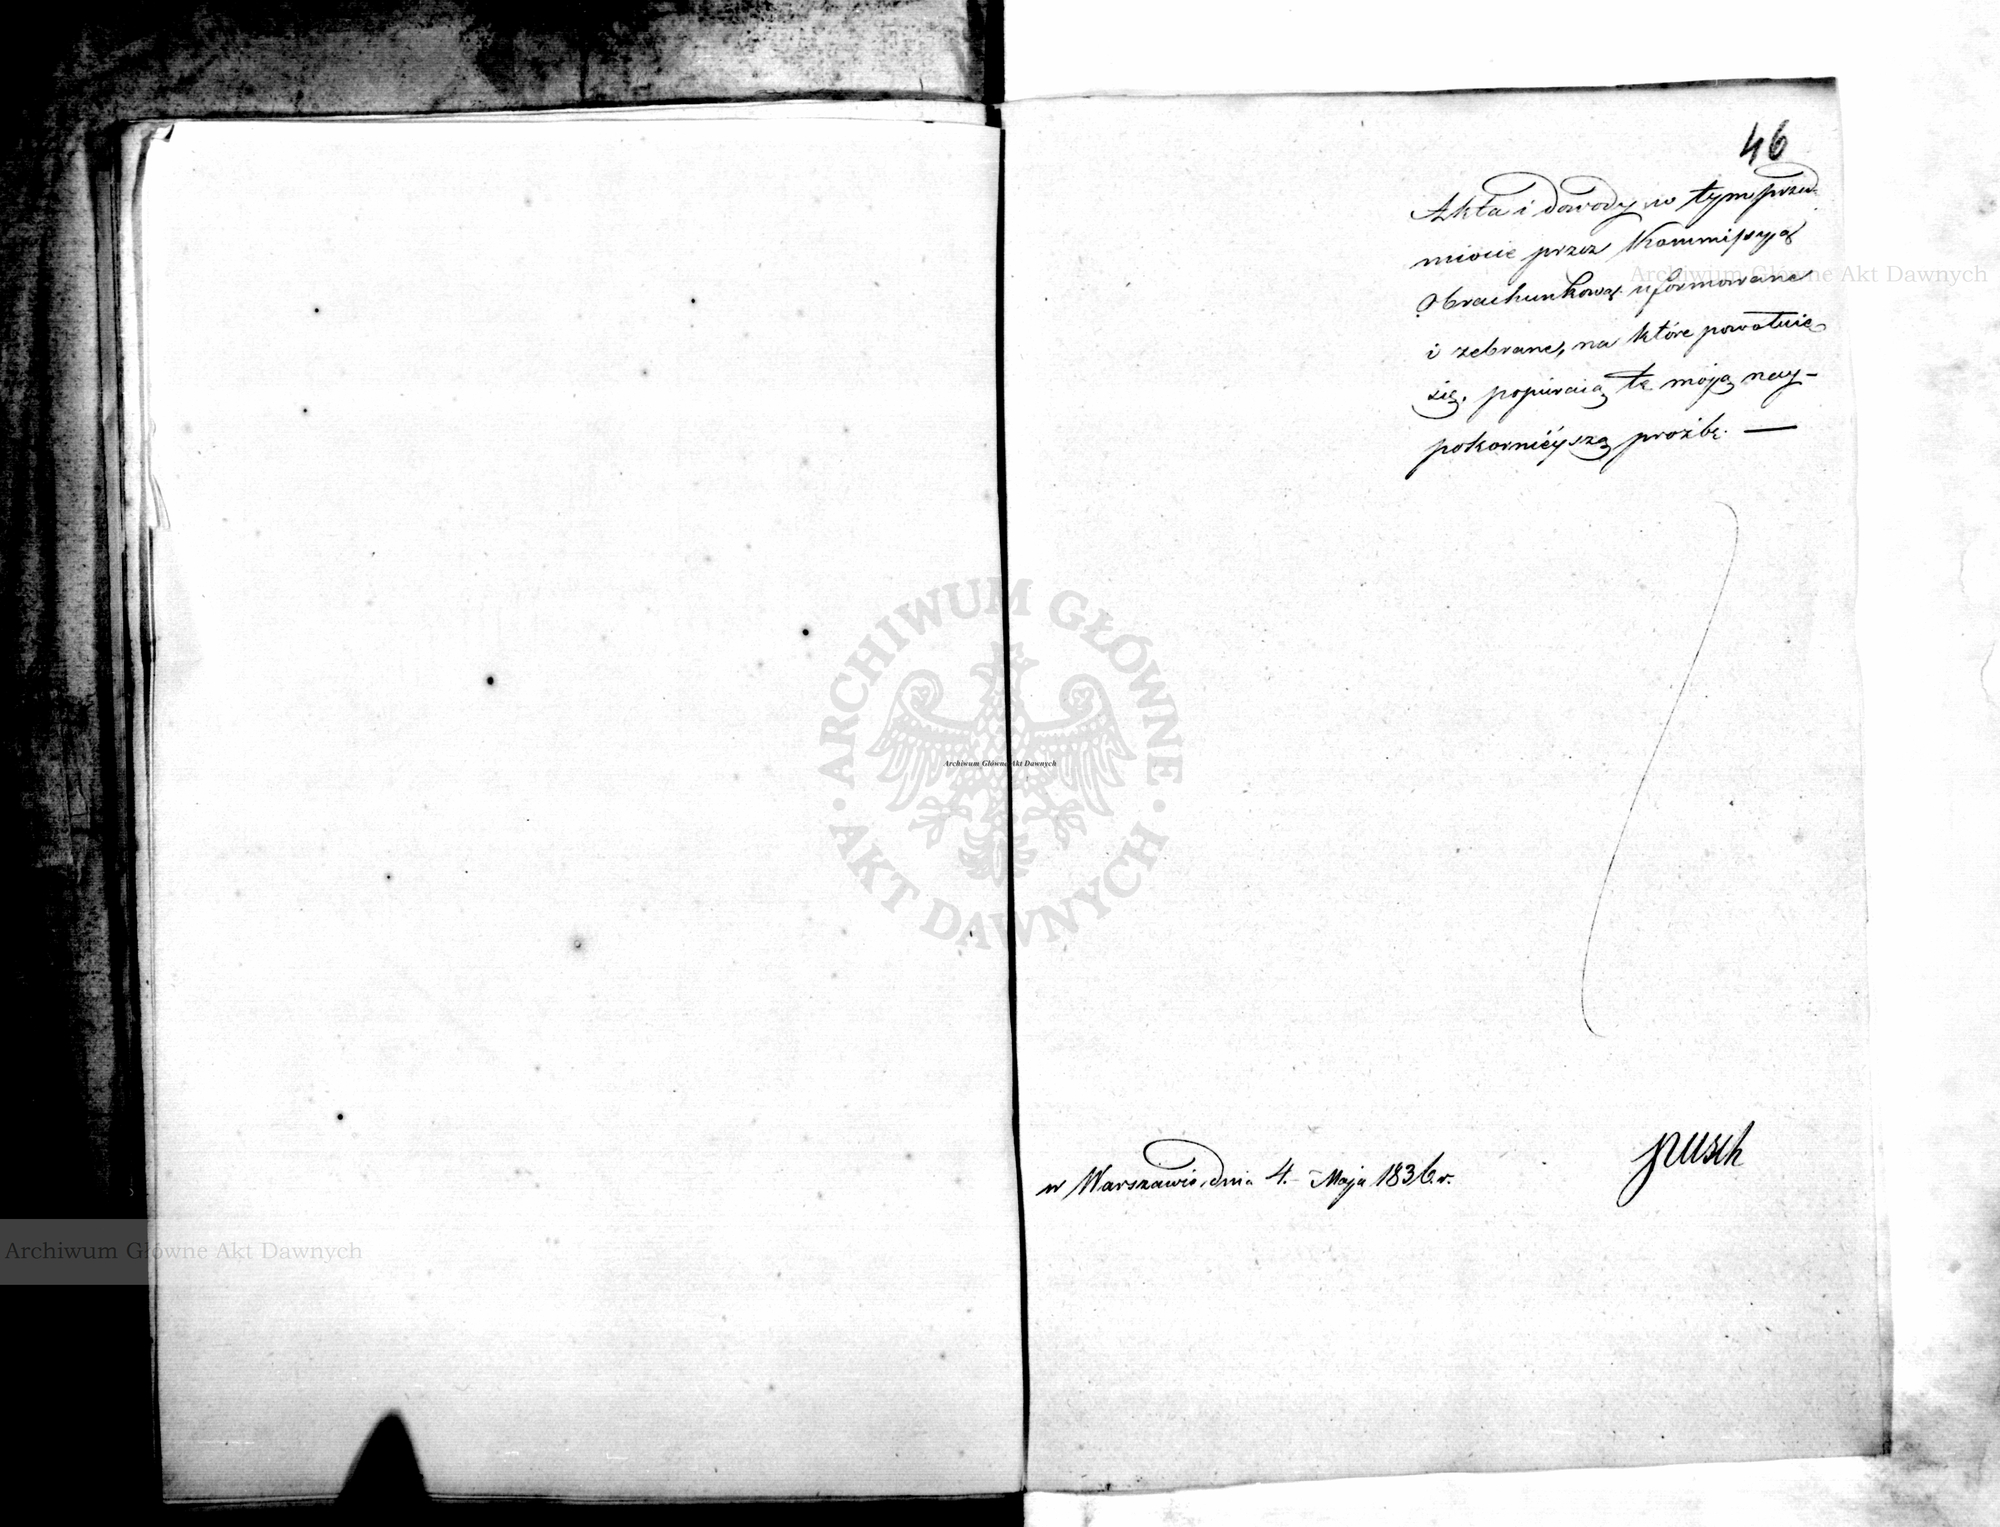 46
Akta i dowody w tym przed-
miocie przez Kommissyą
Obrachunkową uformowane
i zebrane, na które powołuię
się, popieraią tę moję nay-
pokornieyszą prożbę. —
w Warszawie, dnia 4. Maja 1836. r.
Pusch
Archiwum Główne Akt Dawnych
ARCHIWUM GŁÓWNE
AKT DAWNYCH
Archiwum Główne Akt Dawnych
Archiwum Główne Akt Dawnych